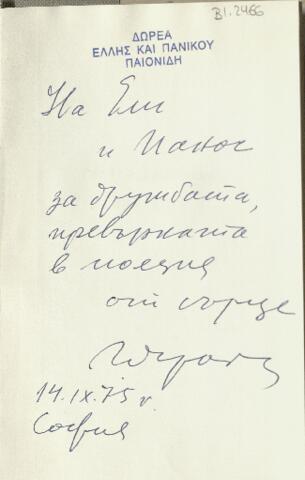 BI.2466
ΔΩΡΕΑ
ΕΛΛΗΣ ΚΑΙ ΠΑΝΙΚΟΥ
ΠΑΙΟΝΙΔΗ
На Ели
и Панос
за дружбата,
превърната
в поезия
от сърце
14.IX.75 г.
София